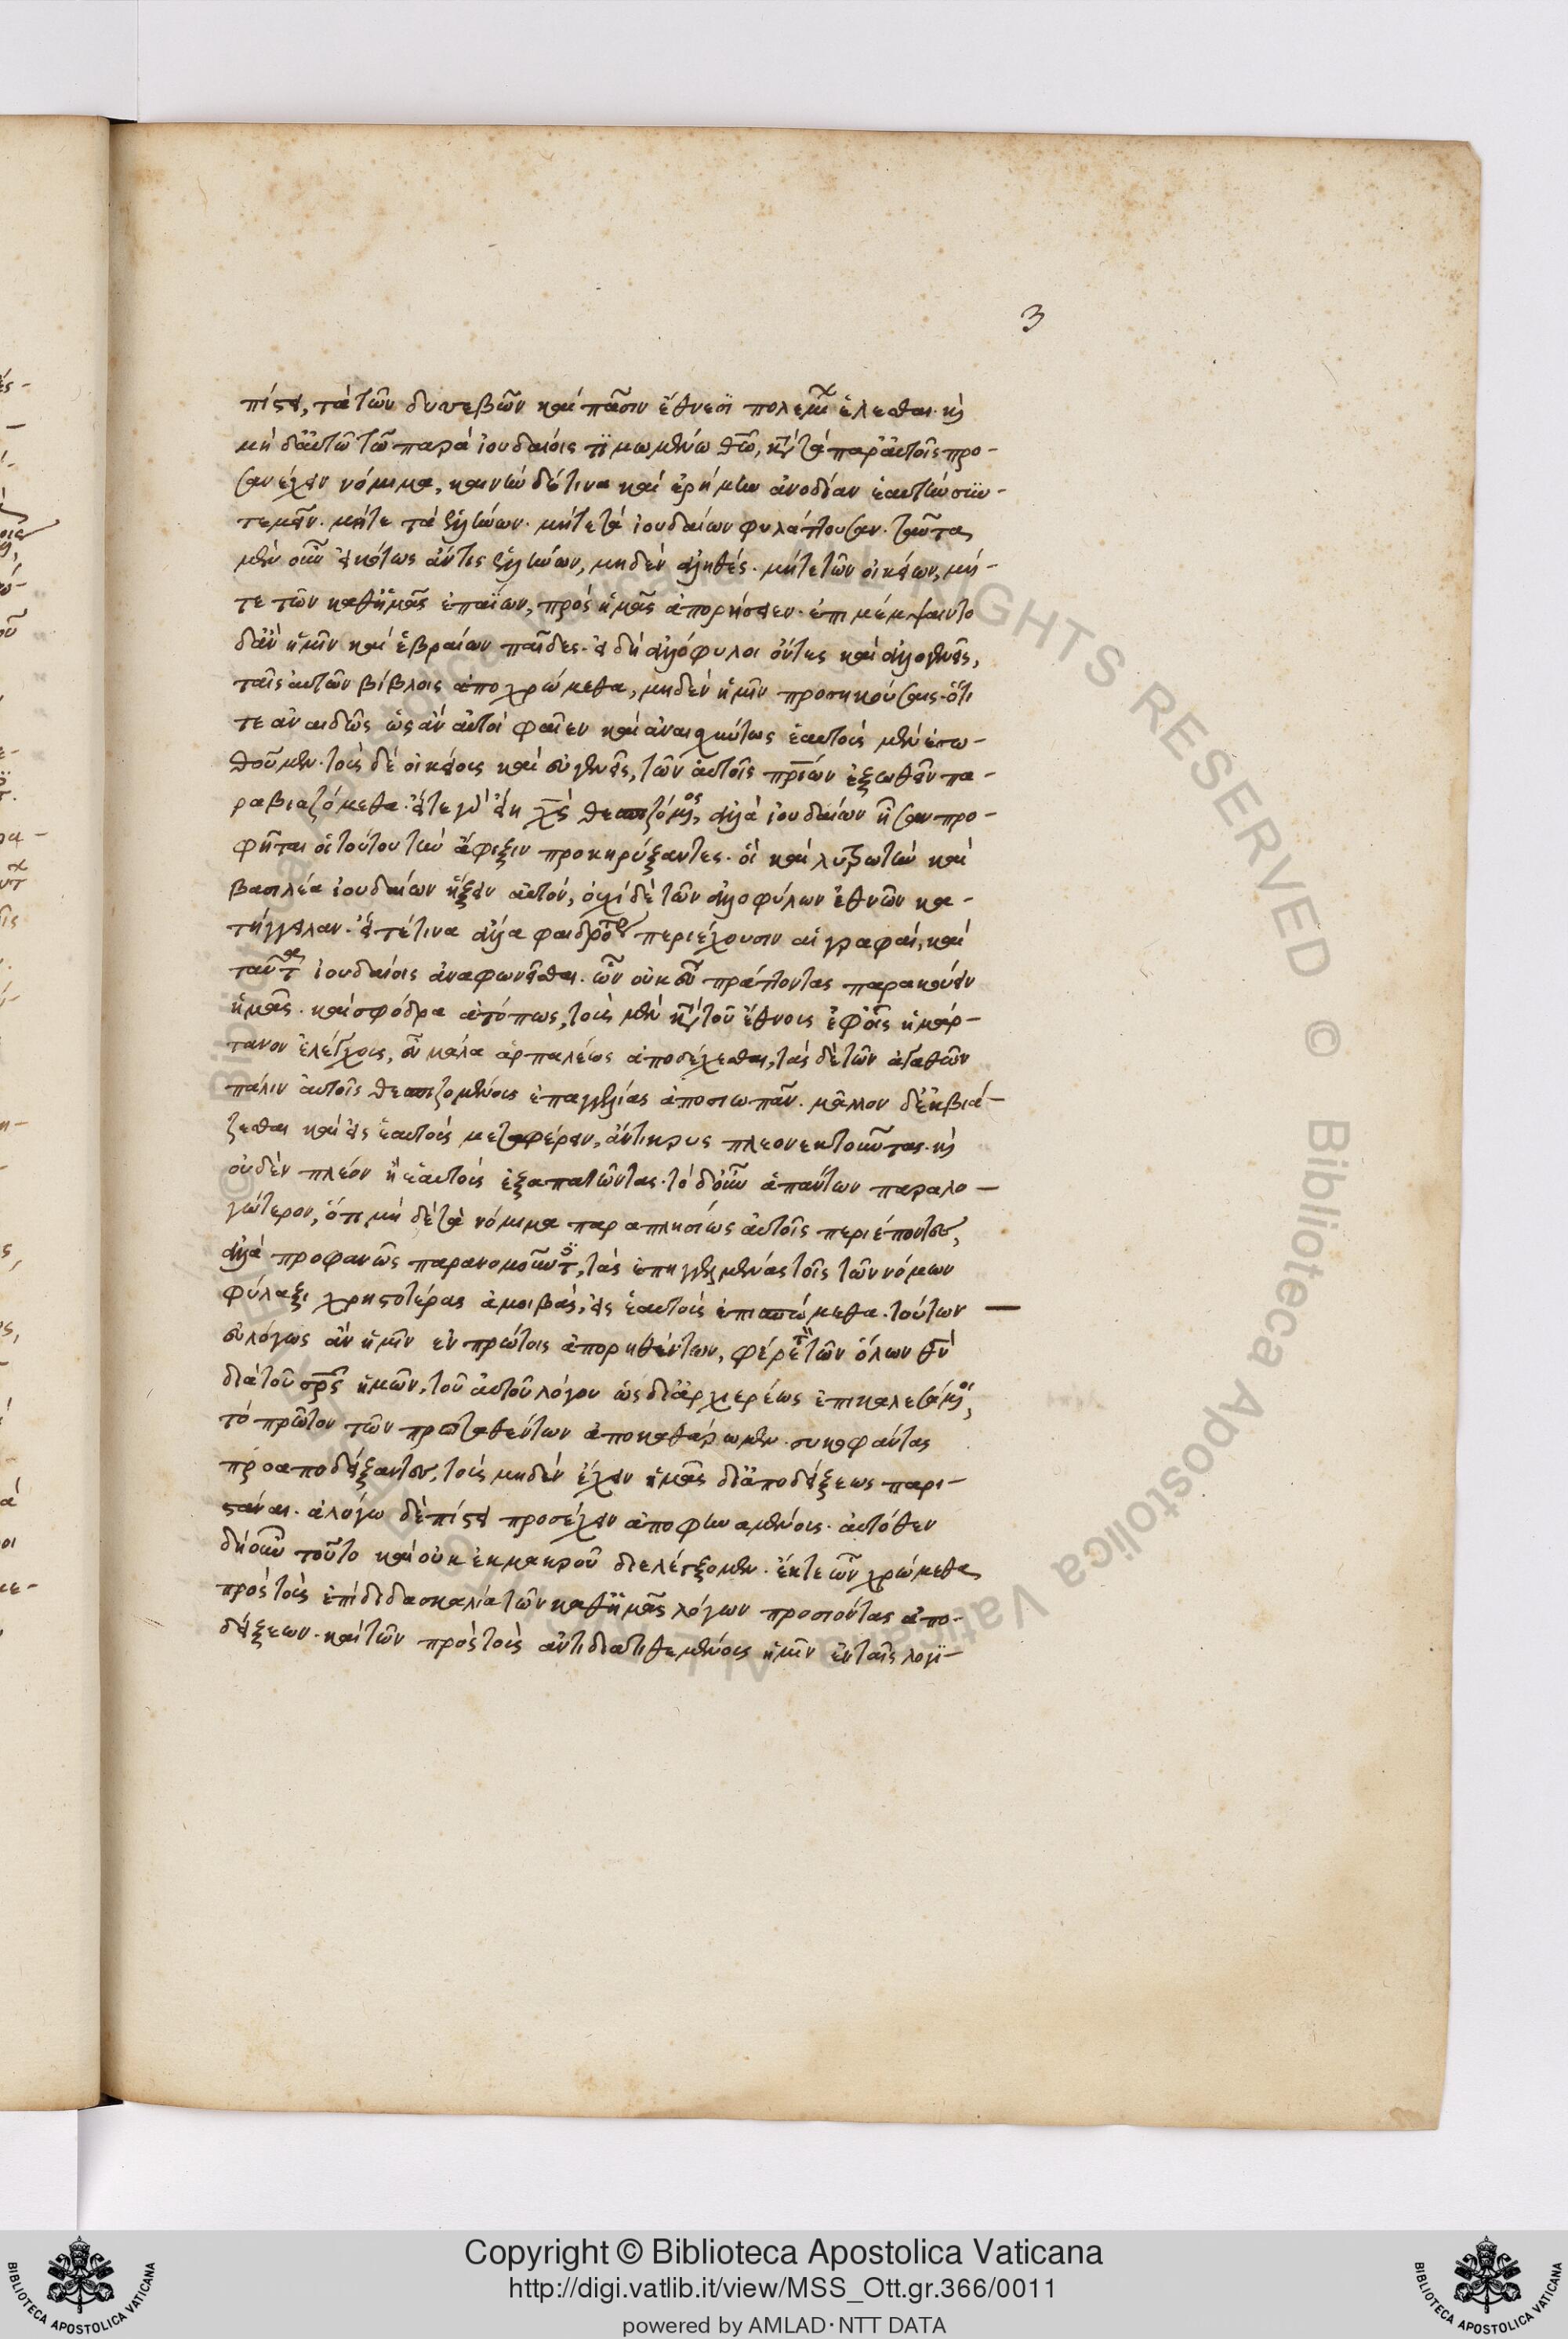 3
πίστει, τὰ τῶν δυσσεβῶν καὶ πᾶσιν ἔθνεσι πολέμια ἑλέσθαι. καὶ
μὴ δ᾽ αὐτῶ τῶ παρὰ ἰουδαίοις τιμωμένω θεῶ, κατὰ τὰ παρ᾽ αὐτοῖς προ-
σανέχειν νόμιμα, καινὴν δέ τινα καὶ ἐρήμην ἀνοδίαν ἑαυτὴν συν-
τεμεῖν. μήτε τὰ ἑλλήνων. μήτε τὰ ἰουδαίων φυλάττουσαν. ταῦτα
μὲν οὖν εἰκότως ἄν τις ἑλλήνων, μηδὲν ἀληθές. μήτε τῶν οἰκείων, μή-
τε τῶν καθ᾽ ἡμᾶς ἐπαΐων, πρὸς ἡμᾶς ἀπορήσειεν. ἐπιμέμψαιντο
δ᾽ ἂν ἡμῖν καὶ ἑβραίων παῖδες. εἰ δὴ ἀλλόφυλοι ὄντες καὶ ἀλλογενεῖς,
ταῖς αὐτῶν βίβλοις ἀποχρώμεθα, μηδὲν ἡμῖν προσηκούσαις. ὅτι
τε ἀναιδῶς ὡς ἂν αὐτοὶ φαῖεν καὶ ἀναισχύτως ἑαυτοὺς μὲν εἰσω-
θοῦμεν. τοὺς δὲ οἰκείους καὶ συγγενεῖς, τῶν αὐτοῖς πατρίων ἐξωθεῖν πα-
ραβιαζόμεθα. εἴτε γὰρ εἴη χς θεσπιζόμενος, ἀλλὰ ἰουδαίων ἦσαν προ-
φῆται οἱ τούτου τὴν ἄφιξιν προκηρύξαντες. οἳ καὶ λυτρωτὴν καὶ
βασιλέα ἰουδαίων ἥξειν αὐτόν, οὐχὶ δὲ τῶν ἀλλοφύλων ἐθνῶν κα-
τήγγειλαν. εἴτε τινα ἄλλα φαιδρότερα περιέχουσιν αἱ γραφαί, καὶ
ταῦτα ἰουδαίοις ἀναφωνεῖσθαι. ὧν οὐκ εὖ πράττοντας παρακούειν
ἡμᾶς. καὶ σφόδρα ἀτόπως, τοὺς μὲν κατὰ τοῦ ἔθνους ἐφ᾽ οἷς ἡμάρ-
τανον ἐλέγχους, εὖ μάλα ἁρπαλέως ἀποδέχεσθαι, τὰς δὲ τῶν ἀγαθῶν
πάλιν αὐτοῖς θεσπιζομένοις ἐπαγγελίας ἀποσιωπᾶν. μᾶλλον δ᾽ ἐκβιά-
ζεσθαι καὶ εἰς ἑαυτοὺς μεταφέρειν, ἄντικρυς πλεονεκτοῦντας. καὶ
οὐδὲν πλέον ἢ ἑαυτοὺς ἐξαπατῶντας. τὸ δ᾽ οὖν ἁπάντων παραλο-
γώτερον, ὅτι μὴ δὲ τὰ νόμιμα παραπλησίως αὐτοῖς περιέποντες,
ἀλλὰ προφανῶς παρανομοῦντες, τὰς ἐπηγγελμένας τοῖς τῶν νόμων
φύλαξι χρηστοτέρας ἀμοιβάς, εἰς ἑαυτοὺς ἐπισπώμεθα. τούτων
εὐλόγως ἂν ἡμῖν ἐν πρώτοις ἀπορηθέντων, φέρε τὸν τῶν ὅλων θν
διὰ τοῦ σρς ἡμῶν, τοῦ αὐτοῦ λόγου ὡς δι᾽ ἀρχιερέως ἐπικαλεσάμενοι,
τὸ πρῶτον τῶν προταθέντων ἀποκαθάρωμεν. συκοφάντας
προαποδείξαντες, τοὺς μηδὲν ἔχειν ἡμᾶς δι᾽ ἀποδείξεως παρι-
στάναι. ἀλόγω δὲ πίστει προσέχειν ἀποφηναμένους. αὐτόθεν
δὴ οὖν τοῦτο καὶ οὐκ ἐκ μακροῦ διελέγξομεν. ἔκ τε ὧν χρώμεθα
πρὸς τοὺς ἐπὶ διδασκαλία τῶν καθ᾽ ἡμᾶς λόγων προσιόντας ἀπο-
δείξεων. καὶ τῶν πρὸς τοὺς ἀντιδιατιθεμένους ἡμῖν ἐν ταῖς λογι-
Copyright © Biblioteca Apostolica Vaticana
http://digi.vatlib.it/view/MSS_Ott.gr.366/0011
powered by AMLAD·NTT DATA